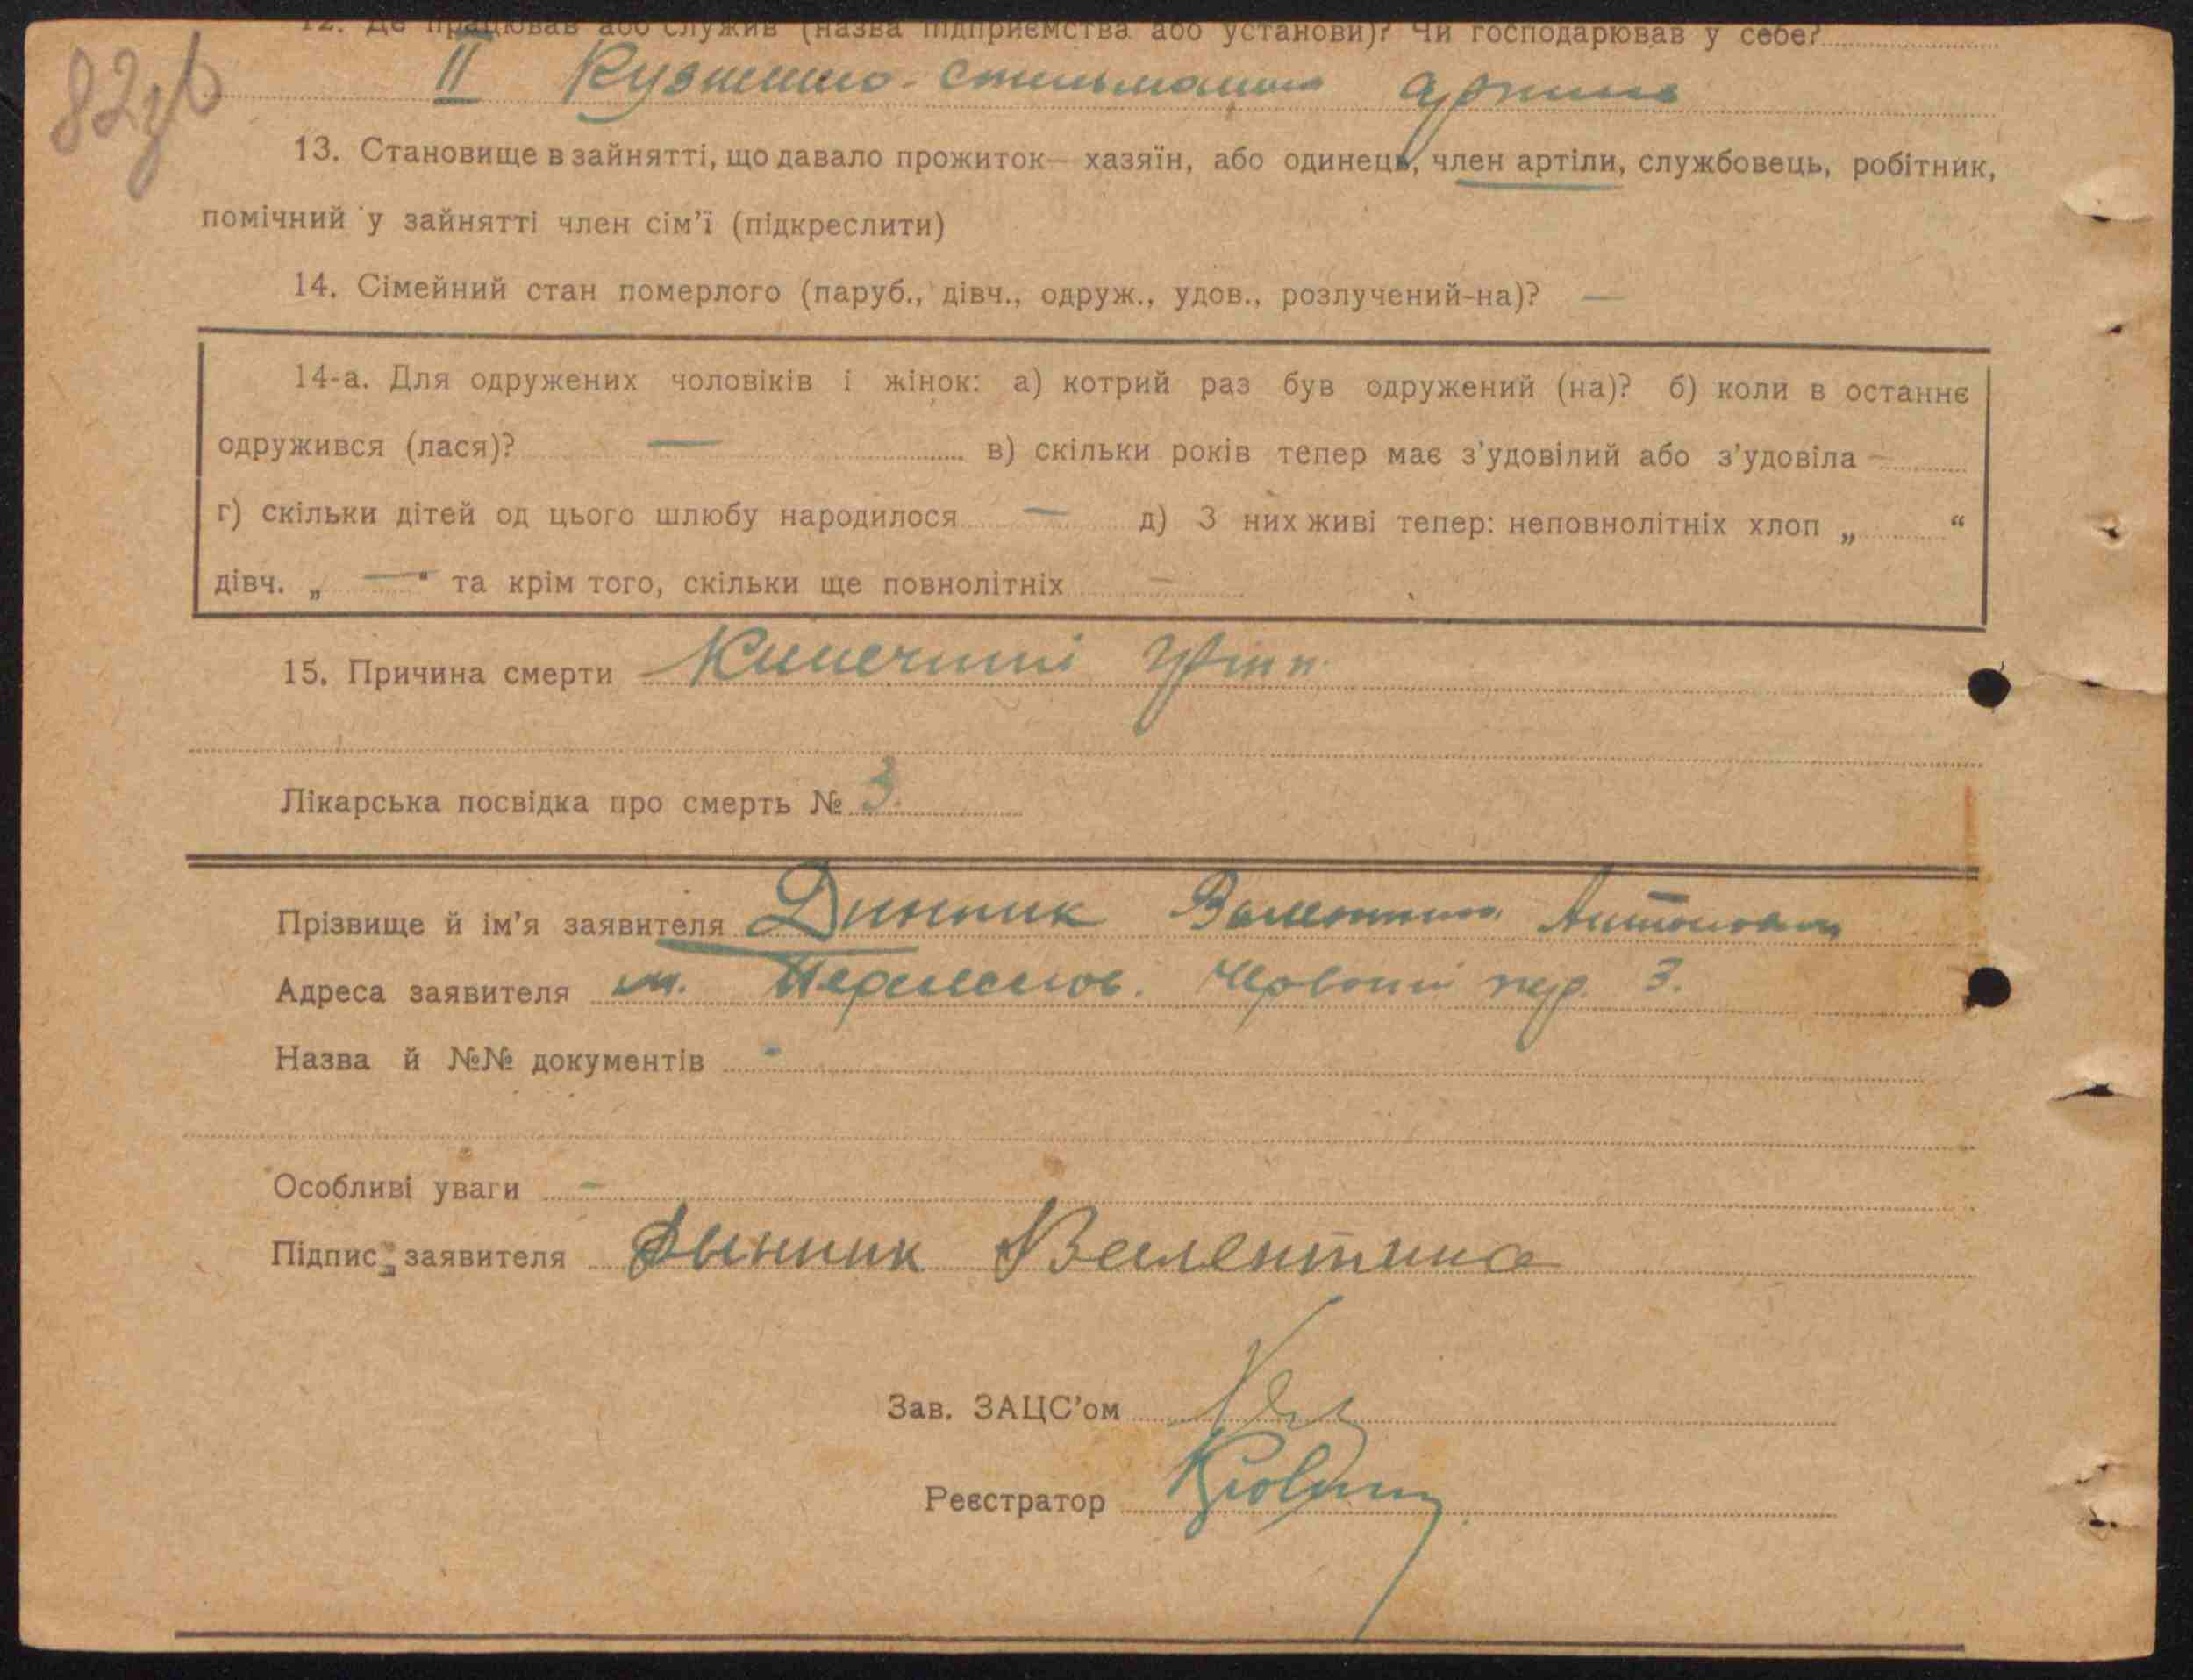 12. Де працював або служив (назва підприємства або установи)? Чи господарював у себе?
82
II Кузнечно-
13. Становище в зайнятті, що давало прожиток— хазяїн, або одинець, член артіли, службовець, робітник,
помічний у зайнятті член сім’ї (підкреслити)
14. Сімейний стан померлого (паруб., дівч., одруж., удов., розлучений-на)? —
14-а. Для одружених чоловіків і жінок: а) котрий раз був одружений (на)? б) коли в останнє
одружився (лася)? — в) скільки років тепер має з’удовілий або з’удовіла -
г) скільки дітей од цього шлюбу народилося — д) З них живі тепер: неповнолітніх хлоп „ “
дівч. „ — “ та крім того, скільки ще повнолітніх —
15. Причина смерти Кишечний грип
Лікарська посвідка про смерть № 3.
Прізвище й ім’я заявителя Динник Валентина Антоновна
Адреса заявителя м. Червоний пер. 3.
Назва й №№ документів -
Особливі уваги -
Підпис заявителя Дынник Валентина
Зав. ЗАЦС’ом
Реєстратор